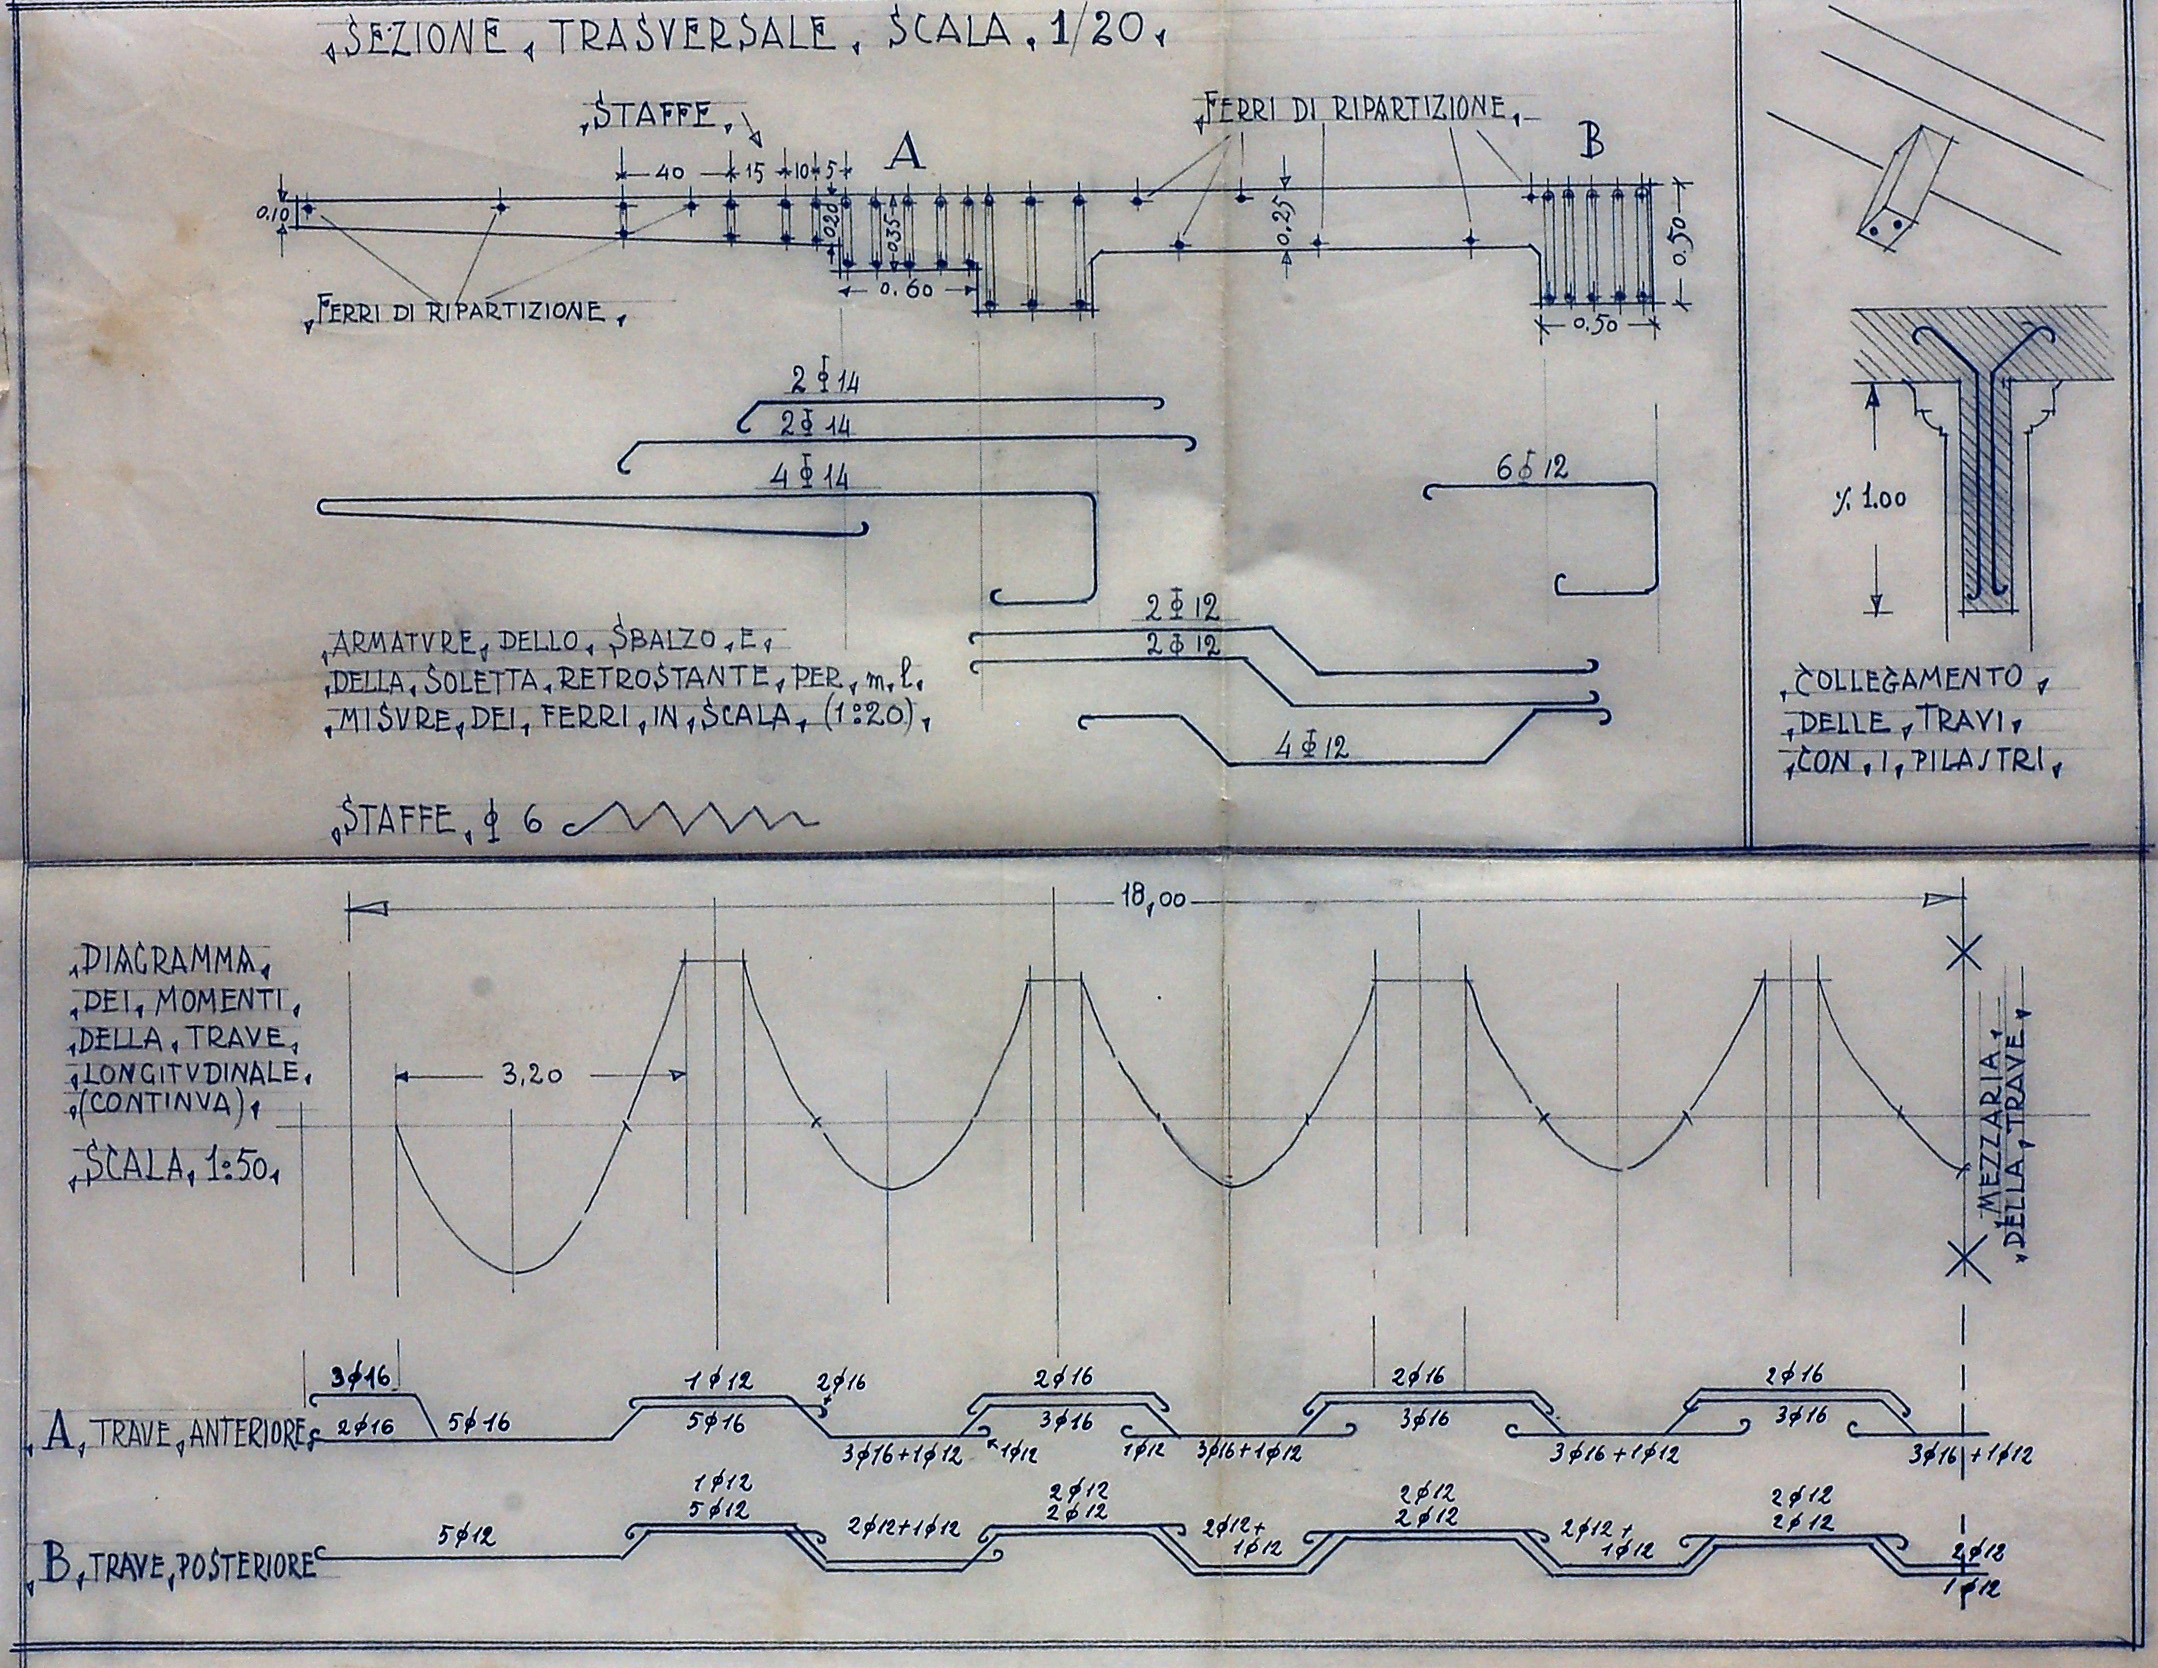 SEZIONE TRASVERSALE. SCALA. 1/20
STAFFE
FERRI DI RIPARTIZIONE
A
B
40
15
10
5
0.10
0.20
0.35
0.60
0.25
0.50
0.50
FERRI DI RIPARTIZIONE
2 Φ 14
2 Φ 14
4 Φ 14
6 Φ 12
2 Φ 12
2 Φ 12
4 Φ 12
ARMATVRE DELLO SBALZO E
DELLA SOLETTA RETROSTANTE PER m.l.
MISVRE DEI FERRI IN SCALA (1:20)
STAFFE Φ 6
1.00
COLLEGAMENTO
DELLE TRAVI
CON I PILASTRI
18,00
DIAGRAMMA
DEI MOMENTI
DELLA TRAVE
LONGITVDINALE
(CONTINVA)
SCALA 1:50
3,20
MEZZARIA
DELLA TRAVE
3ϕ16
1ϕ12
2ϕ16
2ϕ16
2ϕ16
2ϕ16
A TRAVE ANTERIORE
2ϕ16
5ϕ16
5ϕ16
3ϕ16
3ϕ16
3ϕ16
3ϕ16+1ϕ12
1ϕ12
1ϕ12
3ϕ16+1ϕ12
3ϕ16+1ϕ12
3ϕ16+1ϕ12
1ϕ12
5ϕ12
2ϕ12
2ϕ12
2ϕ12
2ϕ12
2ϕ12
2ϕ12
B TRAVE POSTERIORE
5ϕ12
2ϕ12+1ϕ12
2ϕ12+
1ϕ12
2ϕ12+
1ϕ12
2ϕ12
1ϕ12